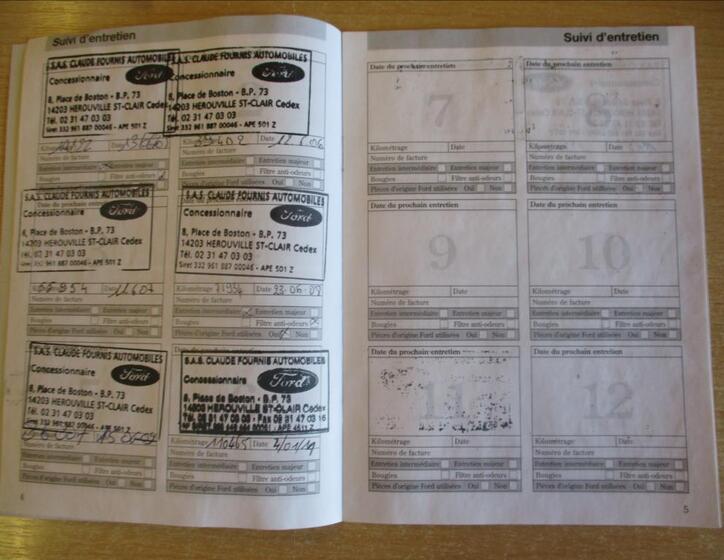 Suivi d'entretien
S.A.S. CLAUDE FOURNIS AUTOMOBILES
Concessionnaire Ford
8, Place de Boston - B.P. 73
14203 HEROUVILLE ST-CLAIR Cedex
Tél. 02 31 47 03 03
Siret 332 961 887 00046 - APE 501 Z
Kilométrage Date
Numéro de facture
Entretien intermédiaire Entretien majeur
Bougies Filtre anti-odeurs
Pièces d'origine Ford utilisées Oui Non
S.A.S. CLAUDE FOURNIS AUTOMOBILES
Concessionnaire Ford
8, Place de Boston - B.P. 73
14203 HEROUVILLE ST-CLAIR Cedex
Tél. 02 31 47 03 03
Siret 332 961 887 00046 - APE 501 Z
Date
Numéro de facture
Entretien intermédiaire Entretien majeur
Bougies Filtre anti-odeurs
Pièces d'origine Ford utilisées Oui Non
S.A.S. CLAUDE FOURNIS AUTOMOBILES
Date du prochain entretien
Concessionnaire Ford
8, Place de Boston - B.P. 73
14203 HEROUVILLE ST-CLAIR Cedex
Tél. 02 31 47 03 03
Siret 332 961 887 00046 - APE 501 Z
Date
Numéro de facture
Entretien intermédiaire Entretien majeur
Bougies Filtre anti-odeurs
Pièces d'origine Ford utilisées Oui Non
S.A.S. CLAUDE FOURNIS AUTOMOBILES
Concessionnaire Ford
8, Place de Boston - B.P. 73
14203 HEROUVILLE ST-CLAIR Cedex
Tél. 02 31 47 03 03
Siret 332 961 887 00046 - APE 501 Z
Kilométrage Date 23.06.08
Numéro de facture
Entretien intermédiaire Entretien majeur
Bougies Filtre anti-odeurs
Pièces d'origine Ford utilisées Oui Non
S.A.S. CLAUDE FOURNIS AUTOMOBILES
Concessionnaire Ford
8, Place de Boston - B.P. 73
14203 HEROUVILLE ST-CLAIR Cedex
Tél. 02 31 47 03 03
Siret 332 961 887 00046 - APE 501 Z
Numéro de facture
Entretien intermédiaire Entretien majeur
Bougies Filtre anti-odeurs
Pièces d'origine Ford utilisées Oui Non
S.A.S. CLAUDE FOURNIS AUTOMOBILES
Concessionnaire Ford
8, Place de Boston - B.P. 73
14203 HEROUVILLE ST-CLAIR Cedex
Kilométrage 110465 Date
Numéro de facture
Entretien intermédiaire Entretien majeur
Bougies Filtre anti-odeurs
Pièces d'origine Ford utilisées Oui Non
6
Suivi d'entretien
Date du prochain entretien
7
Kilométrage Date
Numéro de facture
Entretien intermédiaire Entretien majeur
Bougies Filtre anti-odeurs
Pièces d'origine Ford utilisées Oui Non
Date du prochain entretien
8
Kilométrage Date
Numéro de facture
Entretien intermédiaire Entretien majeur
Bougies Filtre anti-odeurs
Pièces d'origine Ford utilisées Oui Non
Date du prochain entretien
9
Kilométrage Date
Numéro de facture
Entretien intermédiaire Entretien majeur
Bougies Filtre anti-odeurs
Pièces d'origine Ford utilisées Oui Non
Date du prochain entretien
10
Kilométrage Date
Numéro de facture
Entretien intermédiaire Entretien majeur
Bougies Filtre anti-odeurs
Pièces d'origine Ford utilisées Oui Non
Date du prochain entretien
11
Kilométrage Date
Numéro de facture
Entretien intermédiaire Entretien majeur
Bougies Filtre anti-odeurs
Pièces d'origine Ford utilisées Oui Non
Date du prochain entretien
12
Kilométrage Date
Numéro de facture
Entretien intermédiaire Entretien majeur
Bougies Filtre anti-odeurs
Pièces d'origine Ford utilisées Oui Non
5